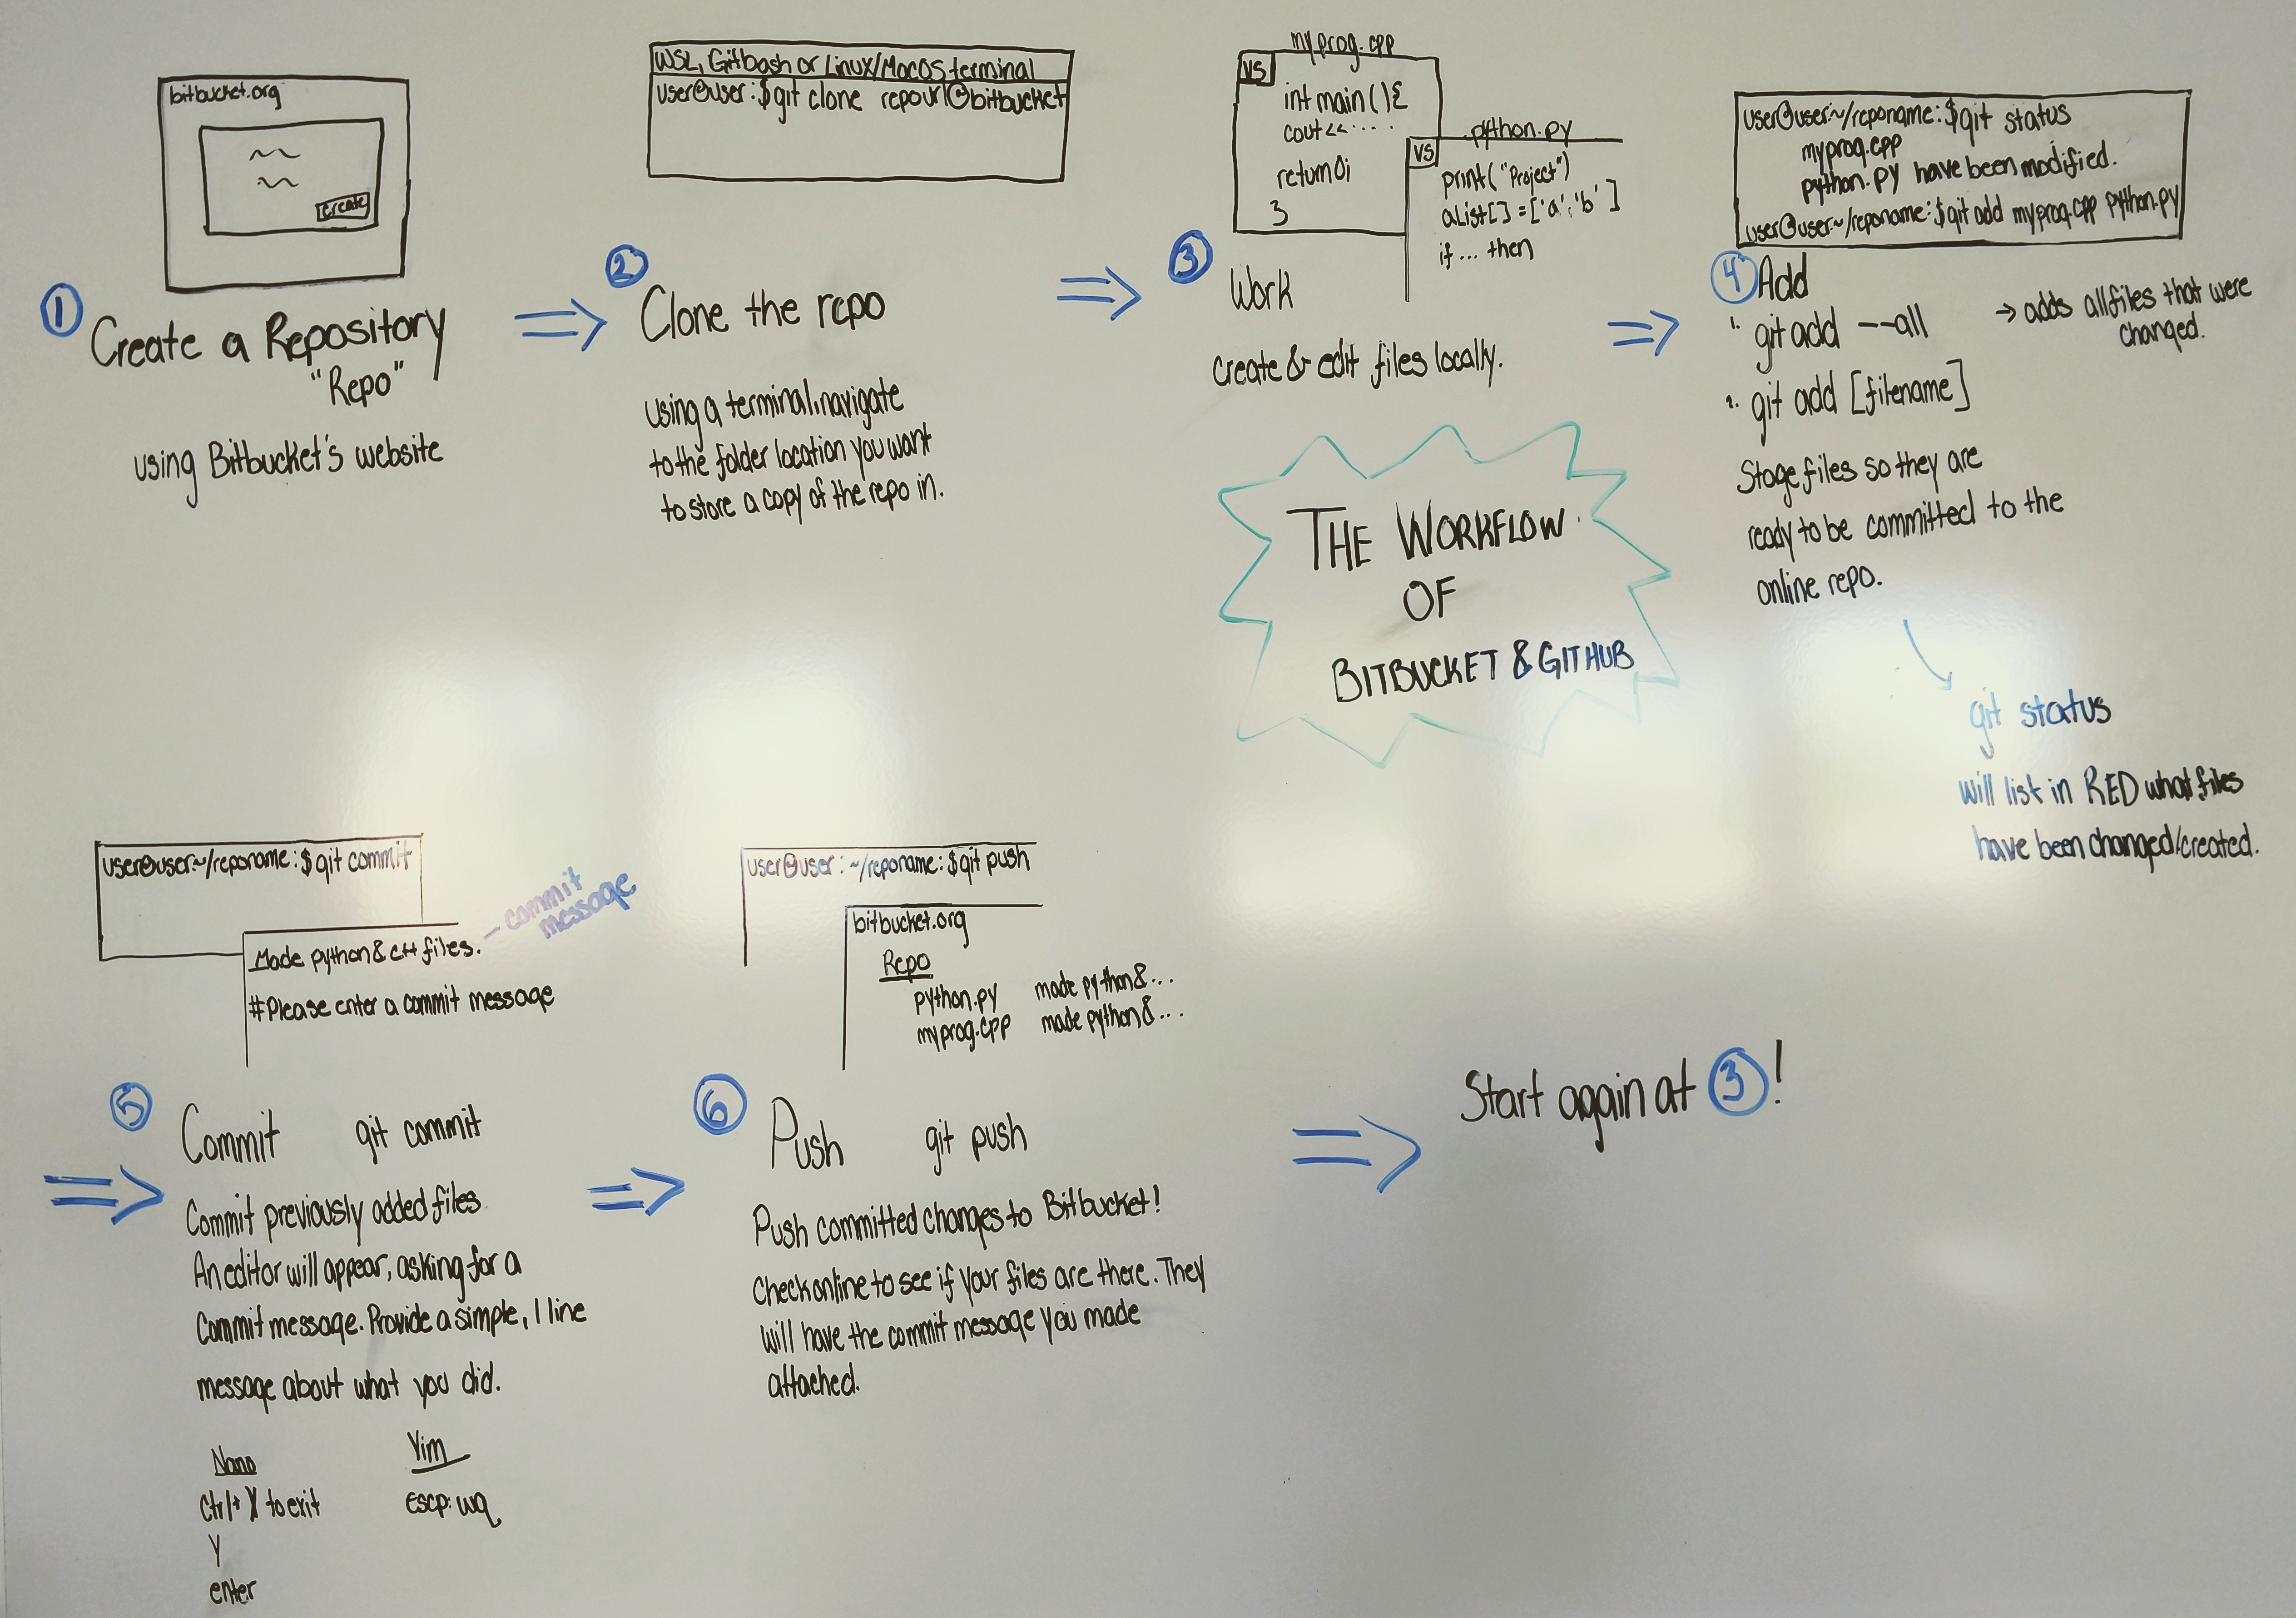 bitbucket.org
create
1 Create a Repository
"Repo"
using Bitbucket's website
WSL, Gitbash or Linux/MacOS terminal
user@user:$git clone repourl@bitbucket
2
Clone the repo
using a terminal, navigate
to the folder location you want
to store a copy of the repo in.
myprog.cpp
VS
int main(){
cout<<....
return 0;
}
python.py
VS
print("Project")
aList[] = ['a','b']
if ... then
3
Work
Create & edit files locally.
THE WORKFLOW
OF
BITBUCKET & GITHUB
user@user:~/reponame:$git status
myprog.cpp
python.py have been modified.
user@user:~/reponame:$git add myprog.cpp python.py
4 Add
1. git add --all → adds all files that were
changed.
2. git add [filename]
Stage files so they are
ready to be committed to the
online repo.
git status
will list in RED what files
have been changed/created.
user@user:~/reponame:$git commit
Made python & c++ files.
- commit
message
#Please enter a commit message
5
Commit git commit
Commit previously added files
An editor will appear, asking for a
Commit message. Provide a simple, 1 line
message about what you did.
Nano
Ctrl+X to exit
Y
enter
Vim
Escp:wq
user@user:~/reponame:$git push
bitbucket.org
Repo
python.py made python & ...
myprog.cpp made python & ...
6
Push git push
Push committed changes to Bitbucket!
Check online to see if your files are there. They
will have the commit message you made
attached.
Start again at 3!